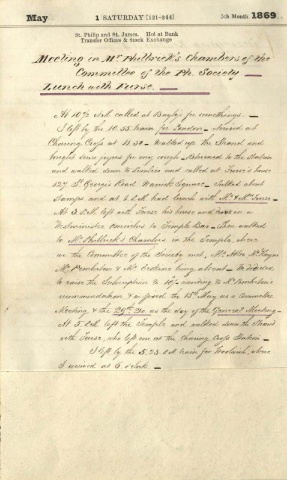 May 1 SATURDAY [121-244] 5th Month 1869
St. Philip and St. James. Hol at Bank
Transfer Offices & Stock Exchange
Meeting in Mr Philbrick's Chambers of the
Committee of the Ph. Society
Lunch with Furse.
At 10½ o'clk called at Bayly's for something.
I left by the 10.55 train for London. Arrived at
Charing Cross at 11.30. Walked up the Strand and
bought some for my cough. Returned to the Station
and walked down to Pimlico and called at Furse's house
127 St George's Road Warwick Square. Talked about
Stamps and at 2 P.M. had lunch with Mr & Mrs Furse.
At 3 P.M. left with Furse his house and rode in a
Westminster omnibus to Temple Bar. Then walked
to Mr Philbrick's Chambers in the Temple, where
in the Committee of the Society met, Mr Atlee Mr
Mr Pemberton & Mr being absent. We decided
to raise the Subscription to 10/- according to Mr Pemberton's
recommendation & agreed the 15th May as a Committee
Meeting & the 29th as the day of the General Meeting.
At 5 left the Temple and walked down the Strand
with Furse, who left me at the Charing Cross Station.
I left by the 5.23 P.M. train for Woolwich, where
I arrived at 6 o'clock.